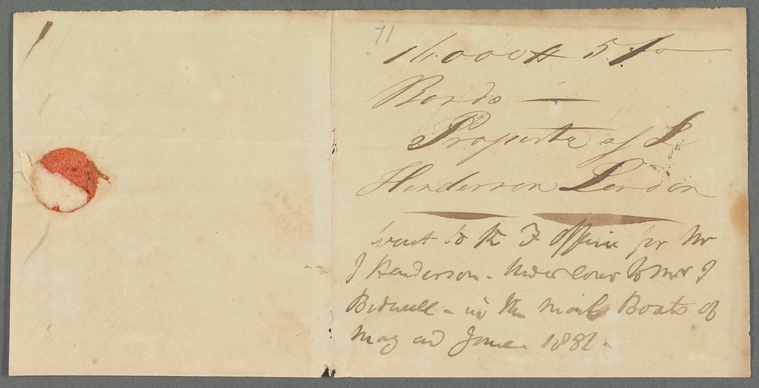 71
Bonds —
Property of J.
Henderson London
sent to the F Office for Mr
J Henderson - under cover to Mr J
Bidwell - in the Mail Boats of
May and June